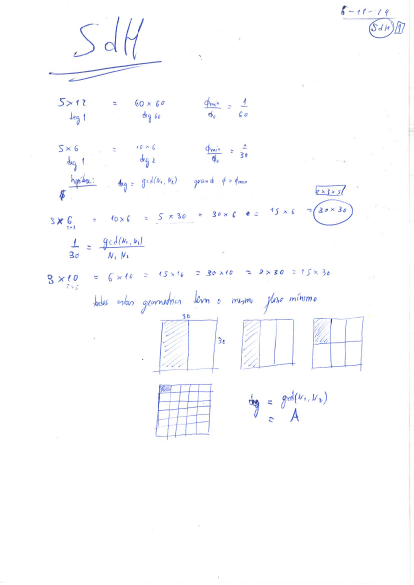 6-11-24
SdH 1
SdH
5×12 = 60×60 ϕmin/ϕ0 = 1/60
deg 1 deg 60
5×6 = ϕmin/ϕ0 = 1/30
deg 1 deg 2
deg = gcd(N1,N2) quando ϕ=ϕmin
3×6 = 10×6 = 5×30 = 30×6 = 15×6 = 30×30
1/30 = gcd(N1,N2)/N1N2
3×10 = 6×10 = 15×10 = 30×10 = = 15×30
todas estas geometrias têm o mesmo fluxo mínimo
30
30
deg = gcd(N1,N2)
= A